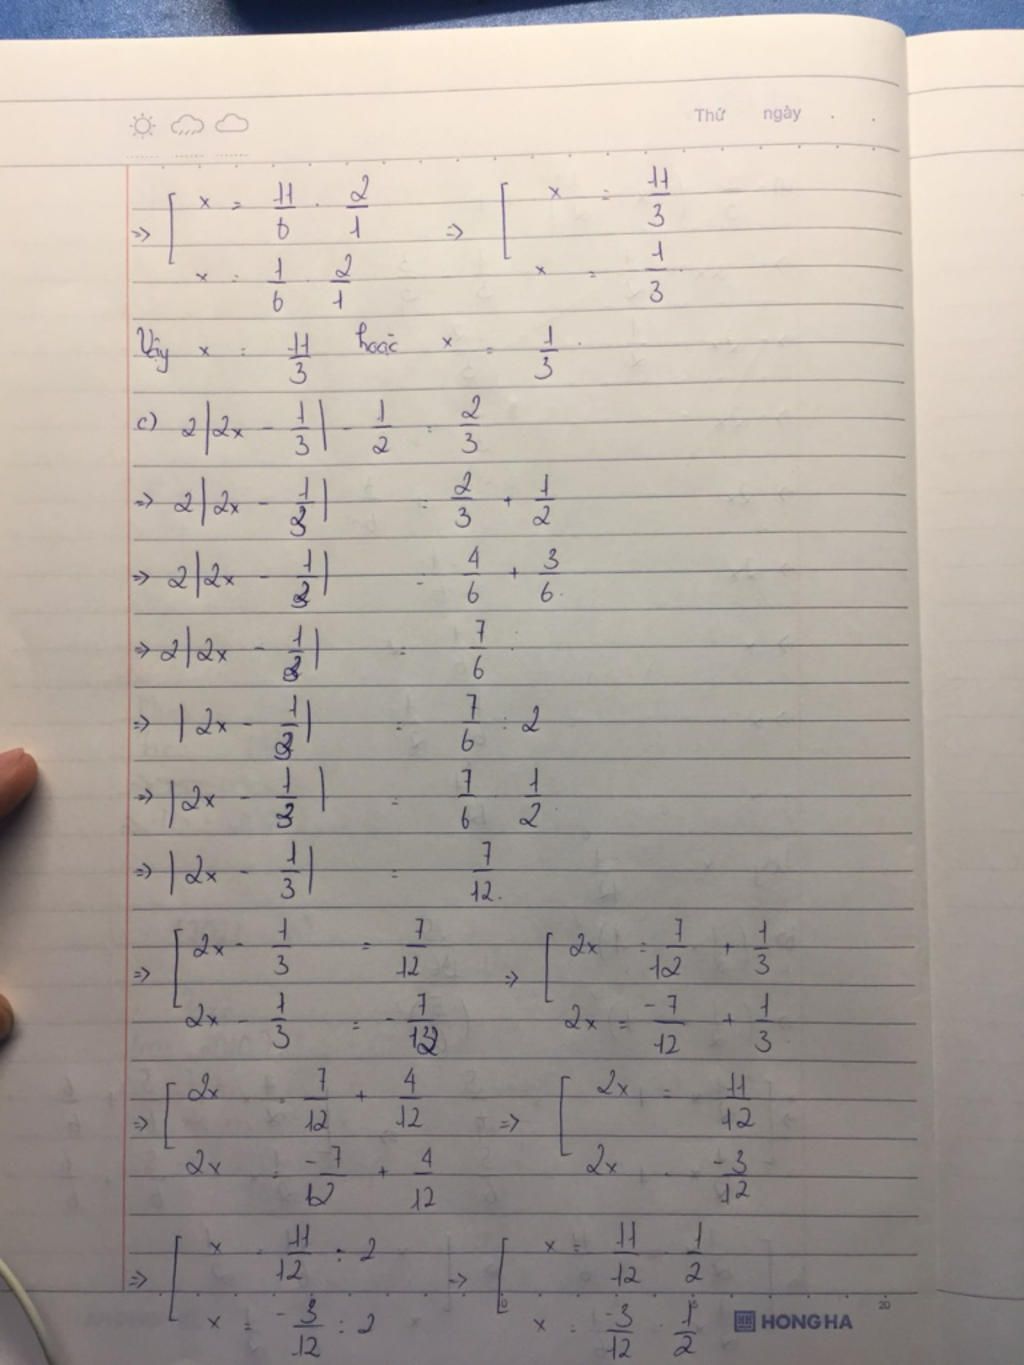 Thứ ngày . .
=> [ x = 11/6 . 2/1 => [ x = 11/3
x = 1/6 . 2/1 x = 1/3
Vậy x = 11/3 hoặc x = 1/3.
c) 2|2x - 1/3| - 1/2 = 2/3
=> 2|2x - 1/3| = 2/3 + 1/2
=> 2|2x - 1/3| = 4/6 + 3/6.
=> 2|2x - 1/3| = 7/6
=> |2x - 1/3| = 7/6 : 2
=> |2x - 1/3| = 7/6 . 1/2
=> |2x - 1/3| = 7/12.
=> [ 2x - 1/3 = 7/12 => [ 2x = 7/12 + 1/3
2x - 1/3 = -7/12 2x = -7/12 + 1/3
=> [ 2x = 7/12 + 4/12 => [ 2x = 11/12
2x = -7/12 + 4/12 2x = -3/12
=> [ x = 11/12 : 2 => [ x = 11/12 . 1/2
x = -3/12 : 2 x = -3/12 . 1/2
HONG HA
20